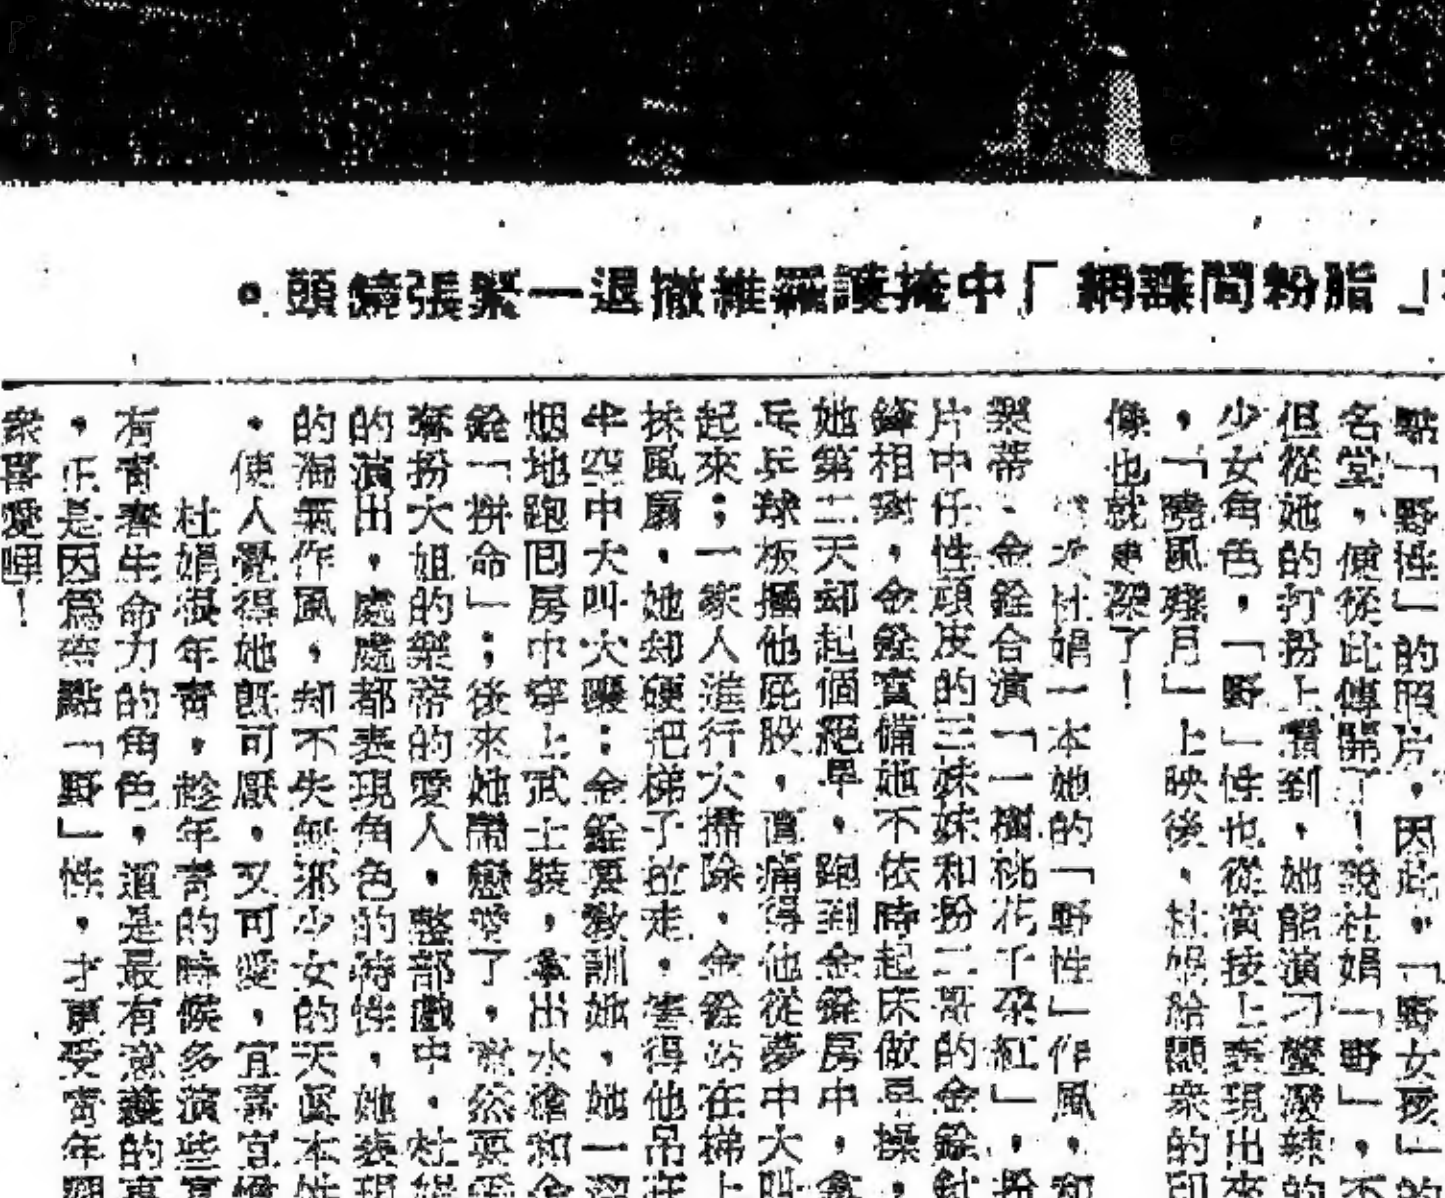 」脂粉間諜網「中掩護羅維撤退一緊張鏡頭。
點「野性」的照片,因此,「野女孩」的
名堂,便從此傳開了!說杜娟「野」,不
但從她的打扮上看到,她能演刁蠻潑辣的
少女角色,「野」性也從演技上表現出來
,「曉風殘月」上映後,杜娟給觀衆的印
像也就更深了!
次杜娟一本她的「野性」作風,和
樂蒂、金銓合演「一樹桃花千朶紅」,扮
片中仔性頑皮的三妹妹和扮二哥的金銓針
鋒相對,金銓責備她不依時起床做早操,
她第二天却起個絕早,跑到金銓房中,拿
乒乓球板搧他屁股,直痛得他從夢中大叫
起來;一家人進行大掃除,金銓站在梯上
抹風扇,她却硬把梯子拉走,害得他吊在
半空中大叫火嚷;金銓要敎訓她,她一溜
烟地跑囘房中穿上武士裝,拿出水槍和金
銓「拼命」;後來她鬧戀愛了,當然要
扮大姐的樂蒂的愛人,整部戲中,杜娟
的演出,處處都表現角色的特性,她表現
的淘氣作風,却不失無邪少女的天眞本性
,使人覺得她既可厭,又可愛,宜嘉宜
杜娟很年青,趁年青的時候多演些富
有青春生命力的角色,這是最有意義的事
,正是因爲帶點「野」性,才更受靑年觀
衆喜愛哩!